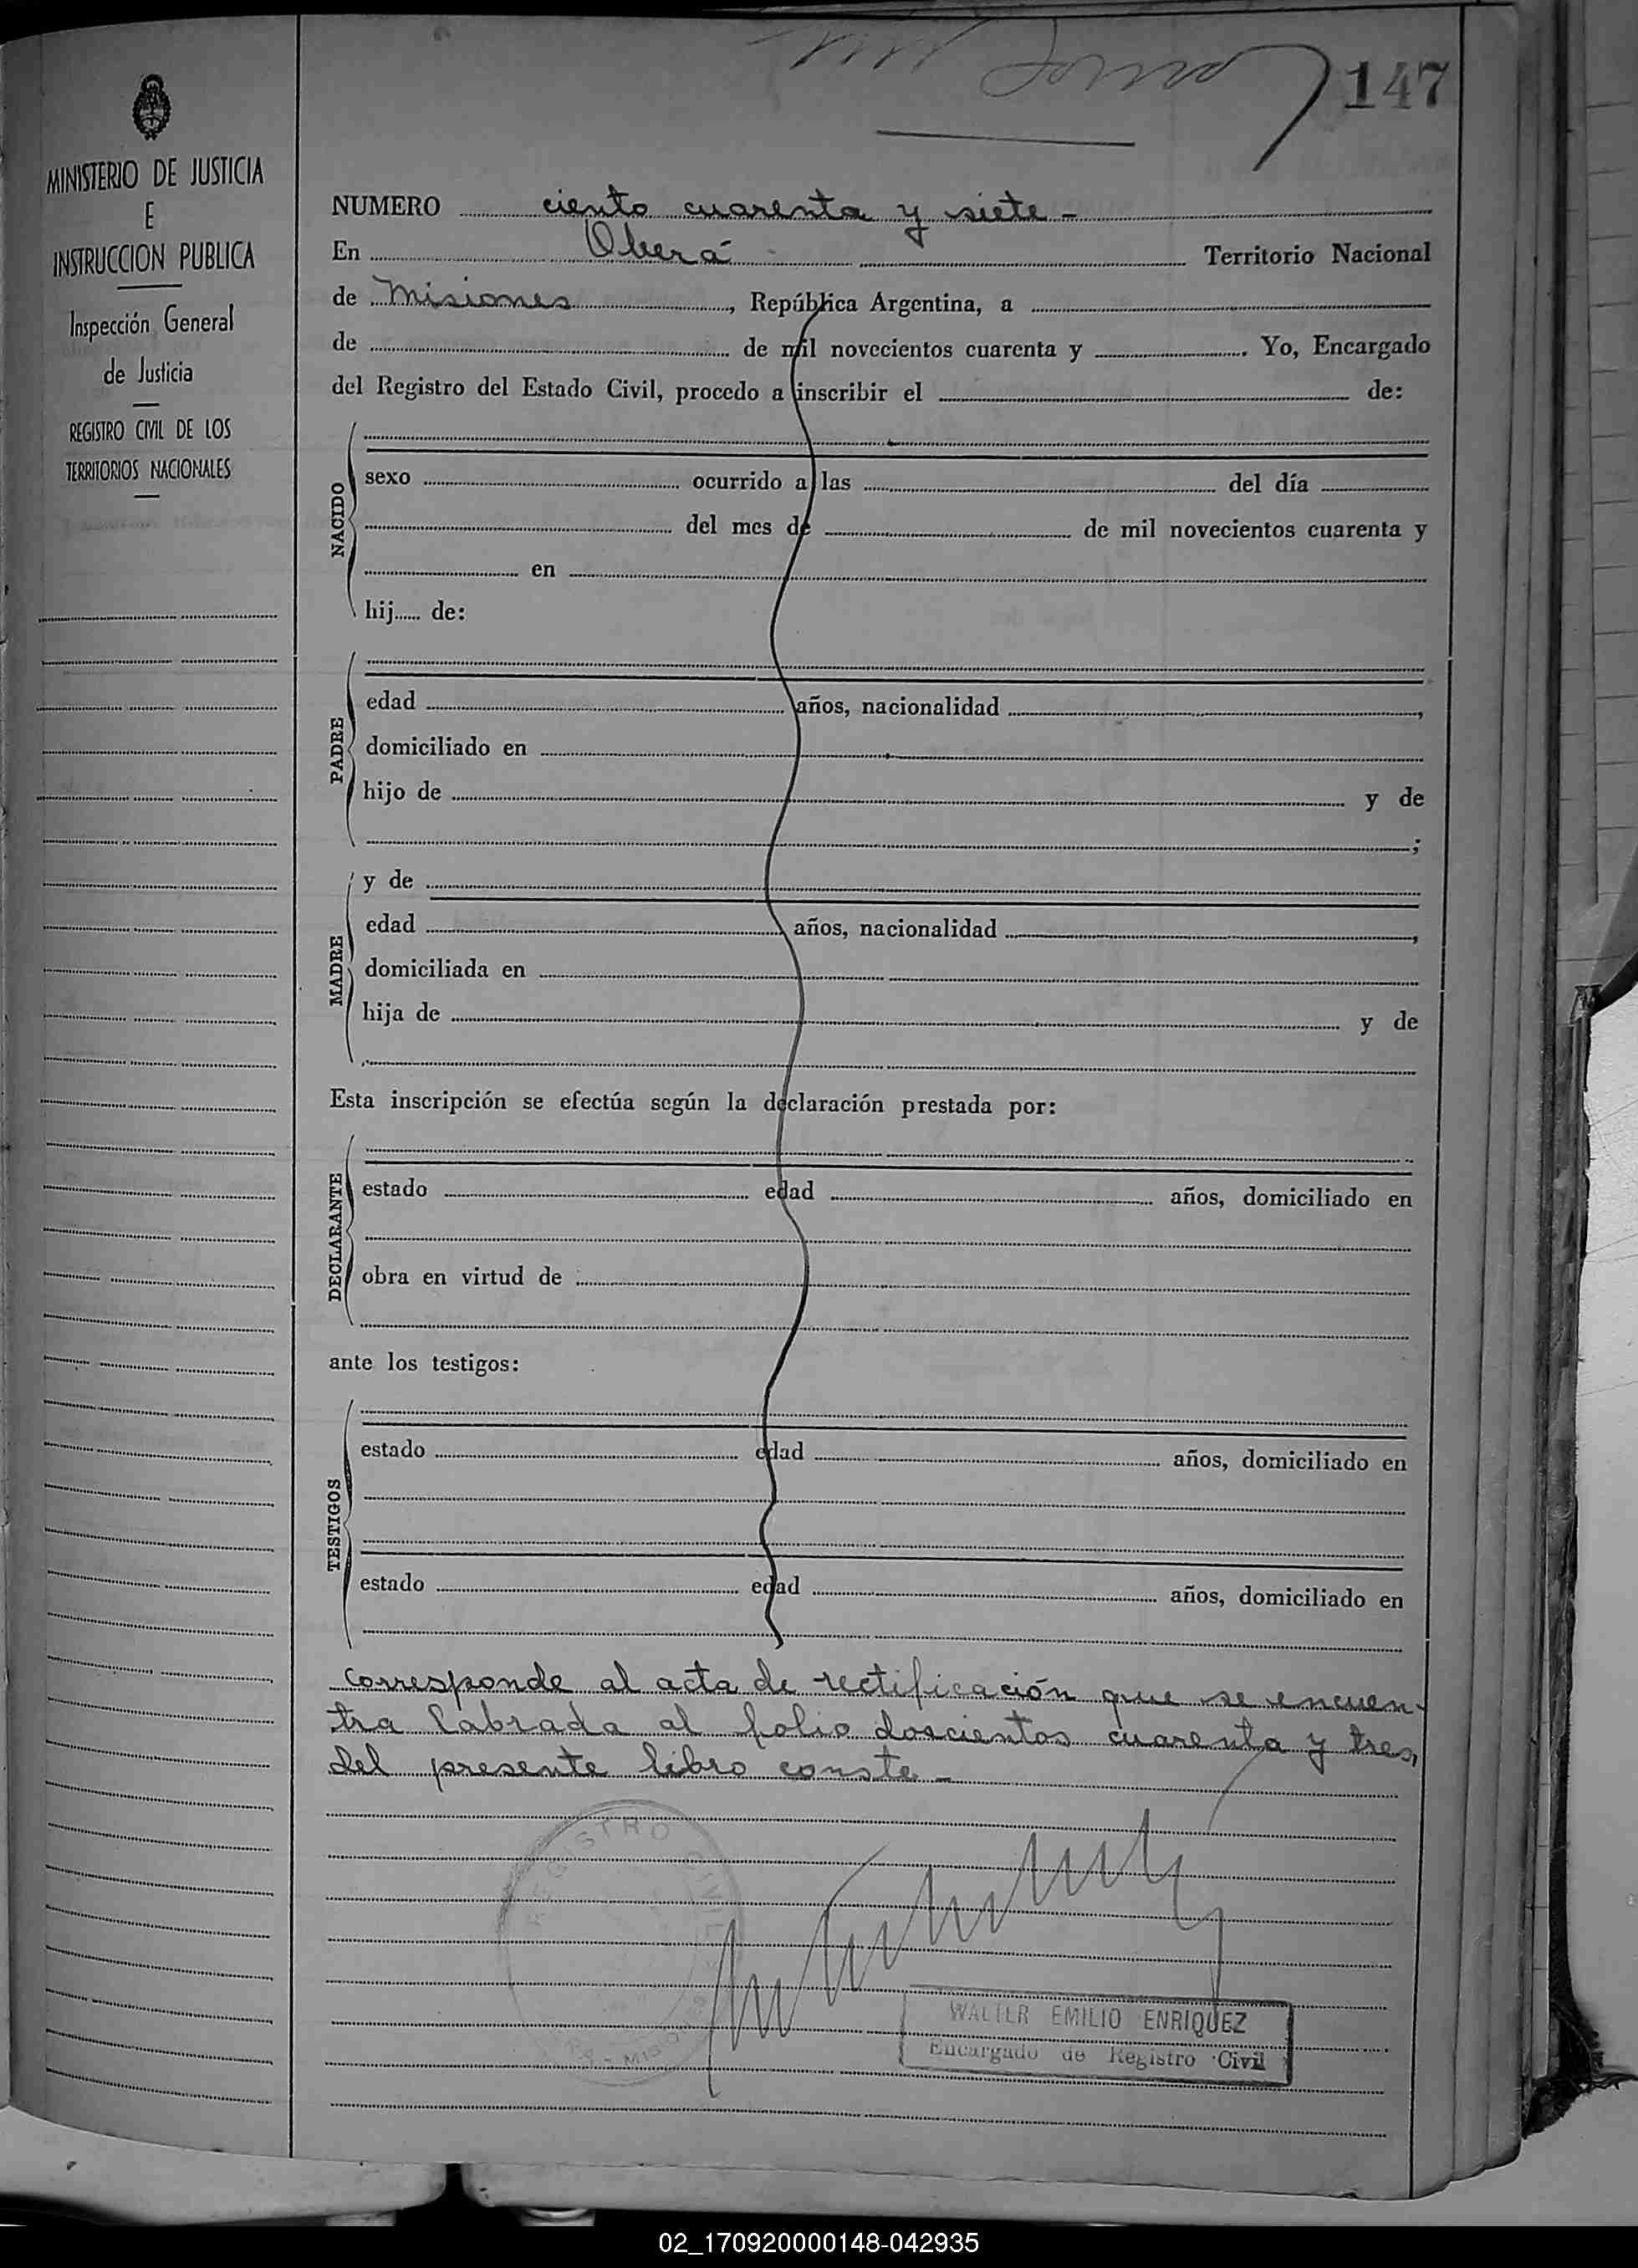 147
MINISTERIO DE JUSTICIA
E
INSTRUCCION PUBLICA
Inspección General
de Justicia
REGISTRO CIVIL DE LOS
TERRITORIOS NACIONALES
NUMERO ciento cuarenta y siete -
En Oberá Territorio Nacional
de Misiones, República Argentina, a
de de mil novecientos cuarenta y . Yo, Encargado
del Registro del Estado Civil, procedo a inscribir el de:
NACIDO
sexo ocurrido a las del día
del mes de de mil novecientos cuarenta y
en
hij de:
PADRE
edad años, nacionalidad ,
domiciliado en
hijo de y de
;
MADRE
y de
edad años, nacionalidad ,
domiciliada en
hija de y de
Esta inscripción se efectúa según la declaración prestada por:
DECLARANTE
estado edad años, domiciliado en
obra en virtud de
ante los testigos:
TESTIGOS
estado edad años, domiciliado en
estado edad años, domiciliado en
Corresponde al acta de rectificación que se encuen-
tra labrada al folio doscientos cuarenta y tres,
del presente libro conste -
REGISTRO CIVIL
WALTER EMILIO ENRIQUEZ
Encargado de Registro Civil
02_170920000148-042935